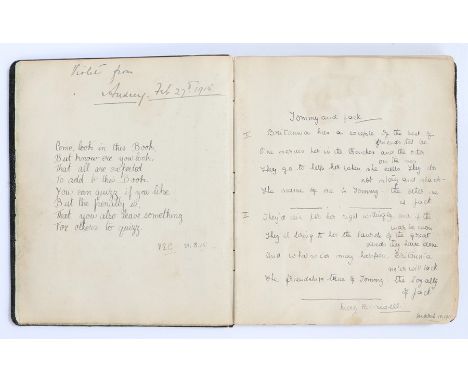 Violet from
Audrey. Feb 27th 1915
Come, look in this Book,
But know ere you look,
That all are expected
To add to this Book.
You can quizz if you like
But the penalty is,
That you also leave something
For others to quizz.
Tommy and Jack
I Britannia has a couple of the best of
friends
One serves her in the trenches and the other
on the sea
They go to help her when she calls they do
not
The name of one is Tommy the other one
is Jack
II They'd die for her right willingly and if the
war be won
They'll bring to her the laurels of the great
deeds they have done
And whatso'er may happen, Britannia
ne'er will lack
The friendship true of Tommy the loyalty
of Jack